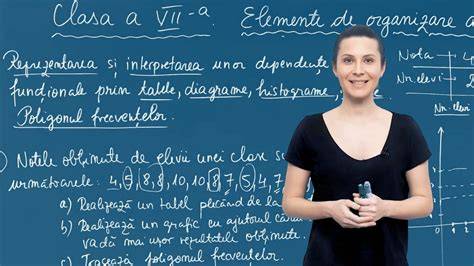 Clasa a VII-a
Elemente de organizare a
Reprezentarea și interpretarea unor dependențe
funcționale prin tabele, diagrame, histograme,
Poligonul frecvențelor.
Notele obținute de elevii unei clase s
următoarele: 4, 7, 8, 8, 10, 10, 8, 7, 5, 4, 7
a) Realizează un tabel plecând de la
b) Realizează un grafic cu ajutorul căruia
vadă mai ușor rezultatele obținute.
c) Trasează poligonul frecvențelor.
Nota
Nr. elevi
Nr. elevi